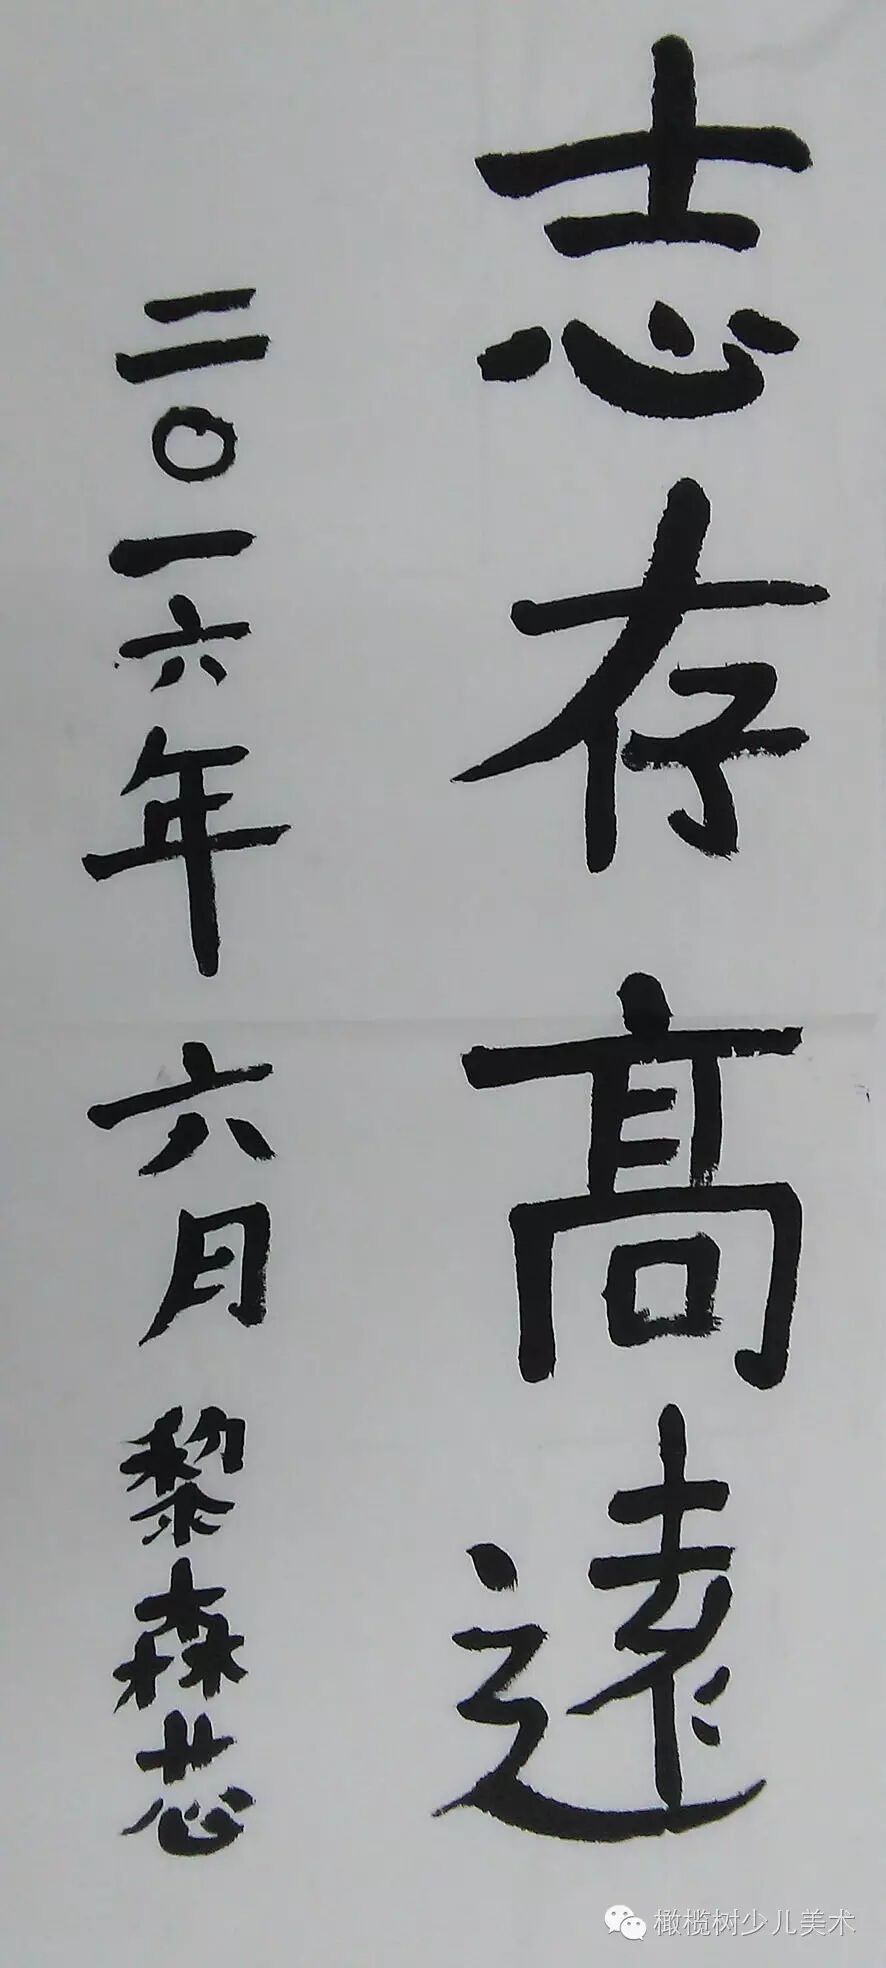 志存髙遠
二〇一六年六月黎森芯
橄榄树少儿美术